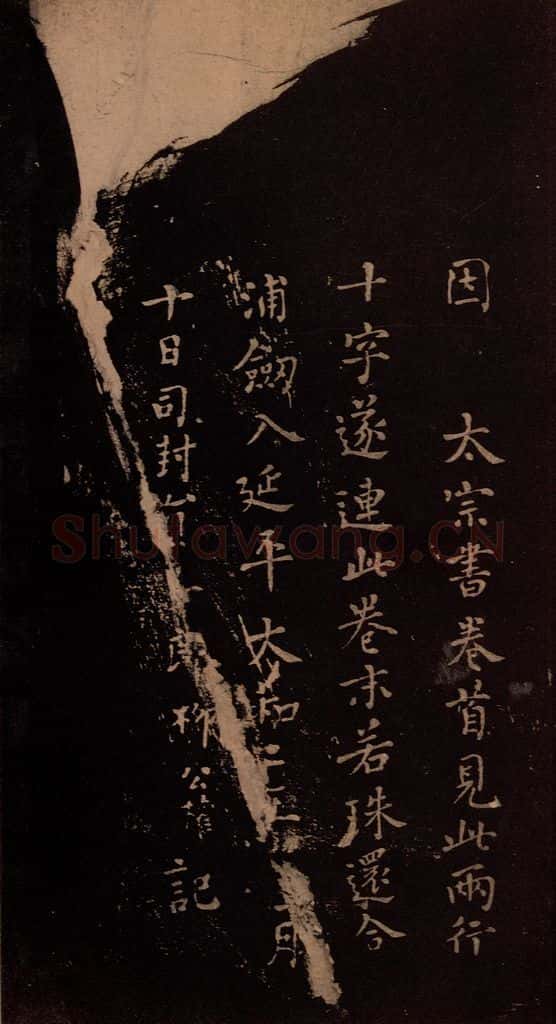 因 太宗書卷首見此兩行
十字遂連此卷末若珠還合
浦劒入延平大和二 月
十日司封 郎柳公權記
Shufawang.CN